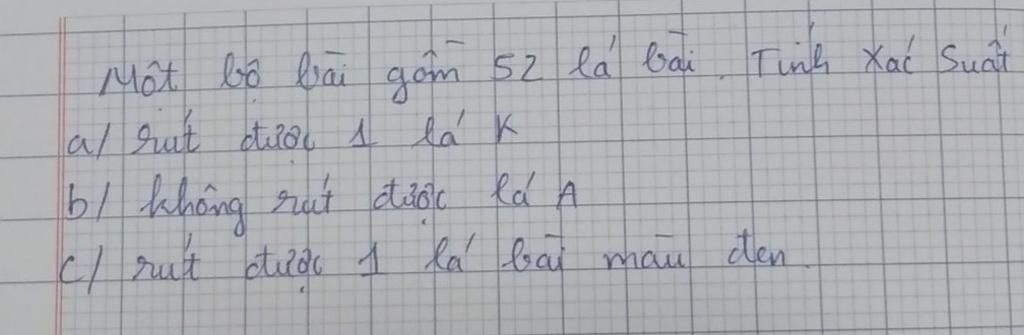 Một bộ bài gồm 52 lá bài. Tính xác suất
a/ rút được 1 lá K
b/ không rút được lá A
c/ rút được 1 lá bài màu đen.